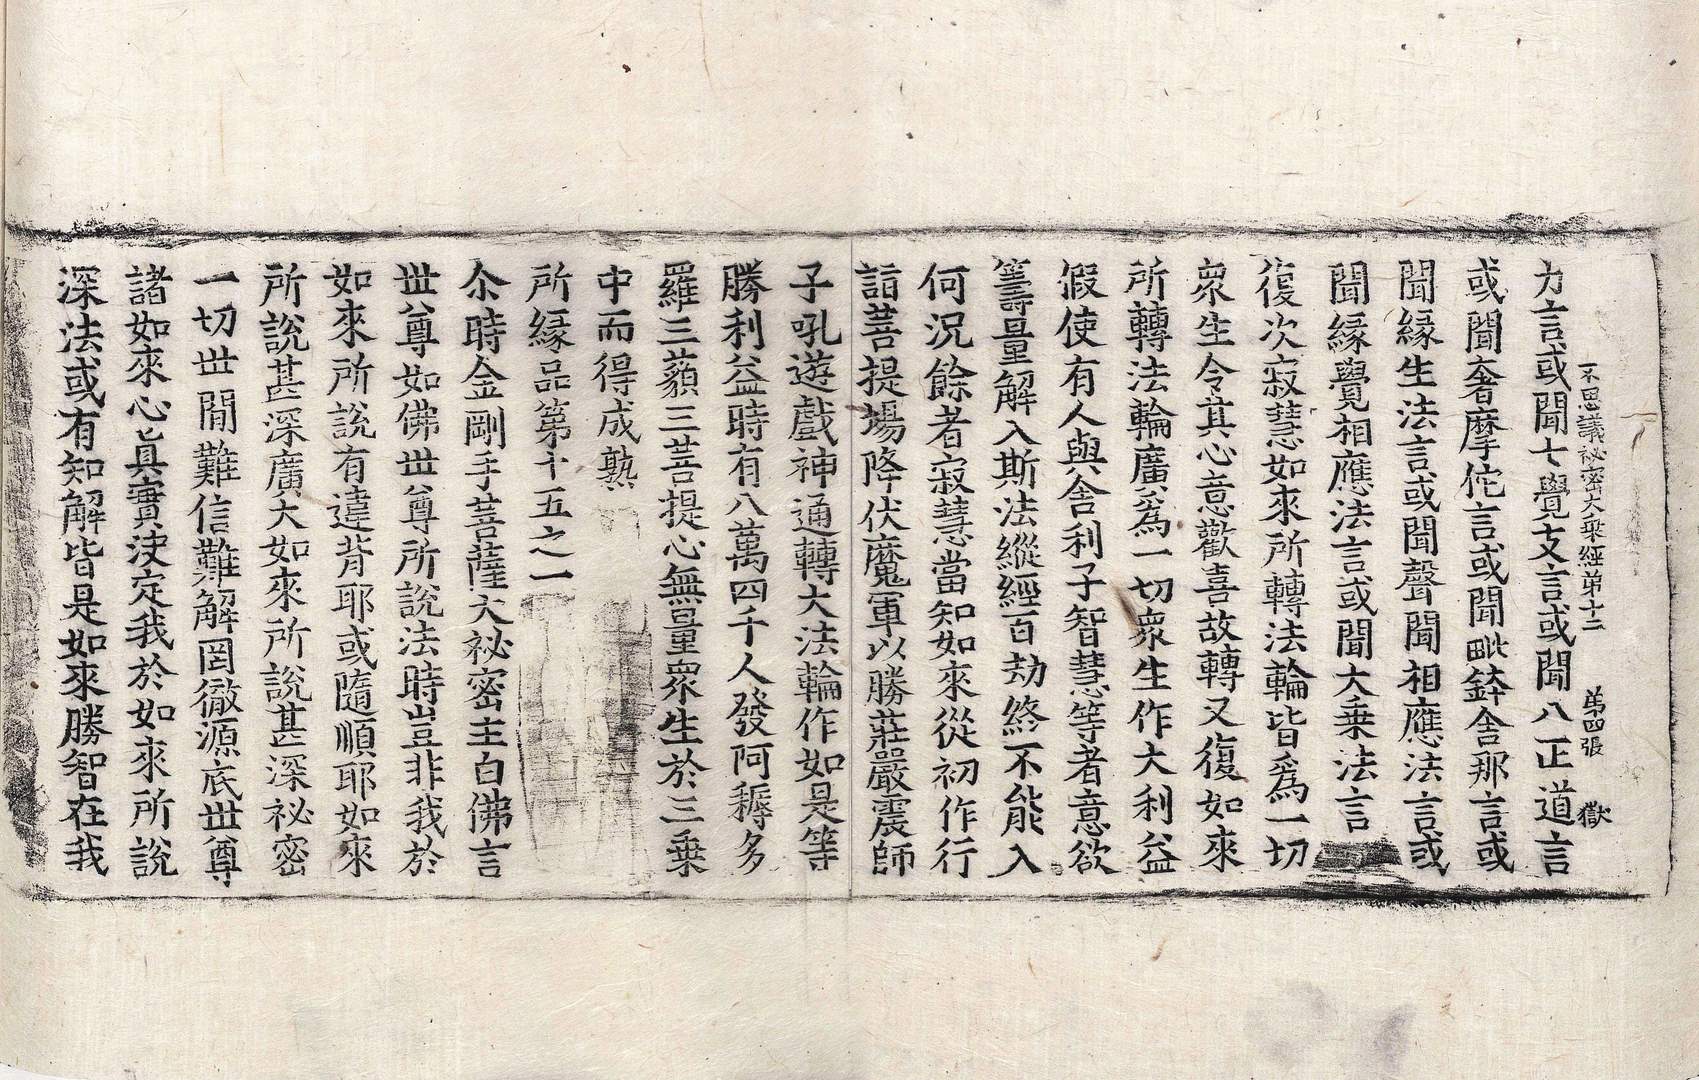 不思議祕密大乘經第十二　第四張　獄
力言或聞七覺支言或聞八正道言
或聞奢摩佗言或聞毗鉢舍那言或
聞緣生法言或聞聲聞相應法言或
聞緣覺相應法言或聞大乘法言
復次寂慧如來所轉法輪皆爲一切
衆生令其心意歡喜故轉又復如來
所轉法輪廣爲一切衆生作大利益
假使有人與舍利子智慧等者意欲
籌量解入斯法縱經百劫終不能入
何況餘者寂慧當知如來從初作行
詣菩提場降伏魔軍以勝莊嚴震師
子吼遊戲神通轉大法輪作如是等
勝利益時有八萬四千人發阿耨多
羅三藐三菩提心無量衆生於三乘
中而得成熟
所緣品第十五之一
尒時金剛手菩薩大祕密主白佛言
世尊如佛世尊所說法時豈非我於
如來所說有違背耶或隨順耶如來
所說甚深廣大如來所說甚深祕密
一切世閒難信難解罔徹源底世尊
諸如來心眞實決定我於如來所說
深法或有知解皆是如來勝智在我